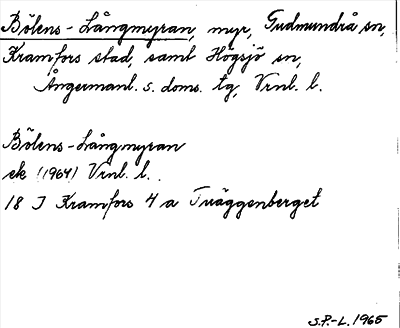 Bölens-Långmyran, myr, Gudmundrå sn,
Kramfors stad, samt Högsjö sn,
Ångermanl. s. doms. tg, Vrnl. l.
Bölens-Långmyran
ek (1964) Vrnl. l.
18 I Kramfors 4 a Tväggenberget
S.P.-L. 1965